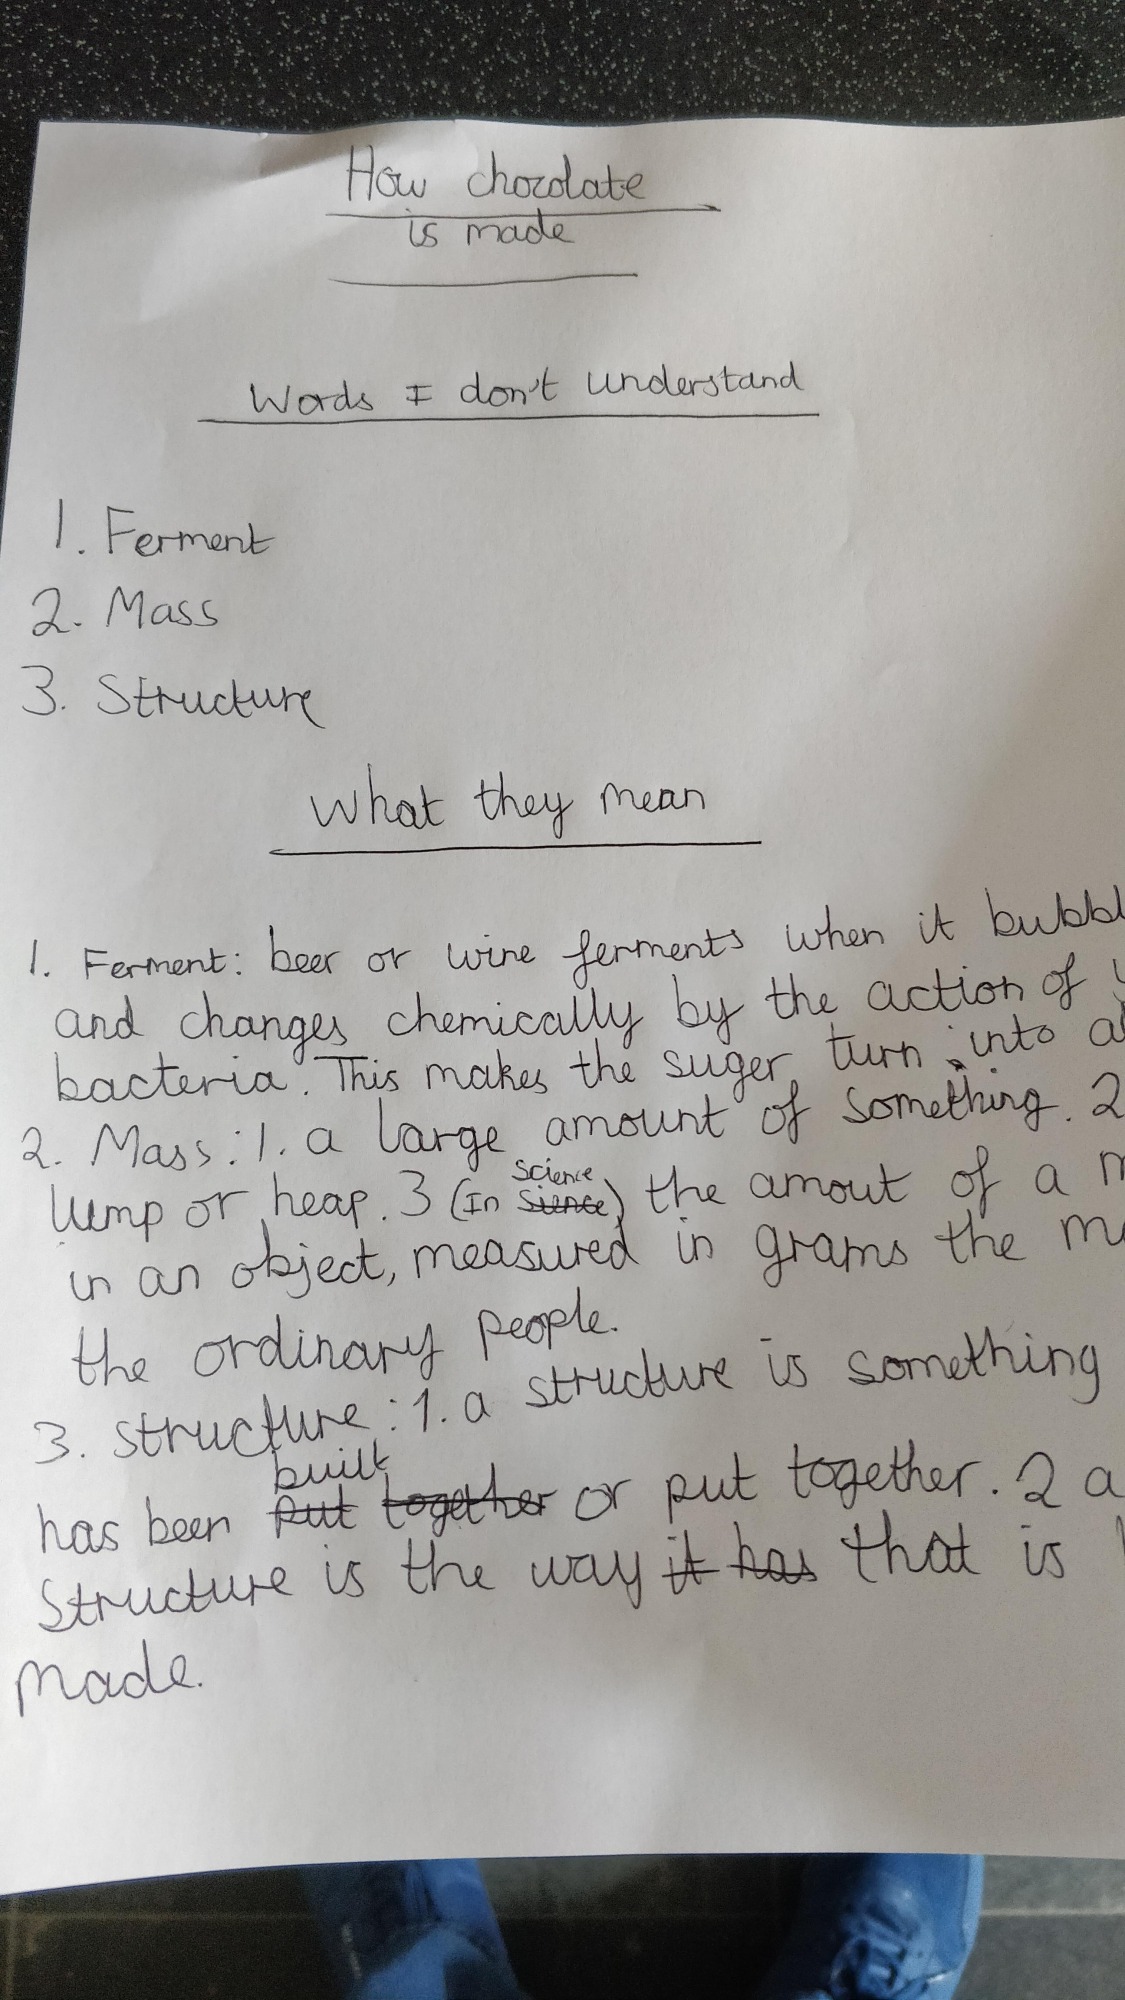 How chocolate
is made
Words I don't understand
1. Ferment
2. Mass
3. Structure
What they mean
1. Ferment: beer or wine ferments when it bubbl
and changes chemically by the action of
bacteria. This makes the suger turn into
2. Mass: 1. a large amount of something. 2
lump or heap. 3 (In science) the amout of a
in an object, measured in grams the
the ordinary people.
3. structure: 1. a structure is something
has been built or put together. 2 a
structure is the way that is
made.